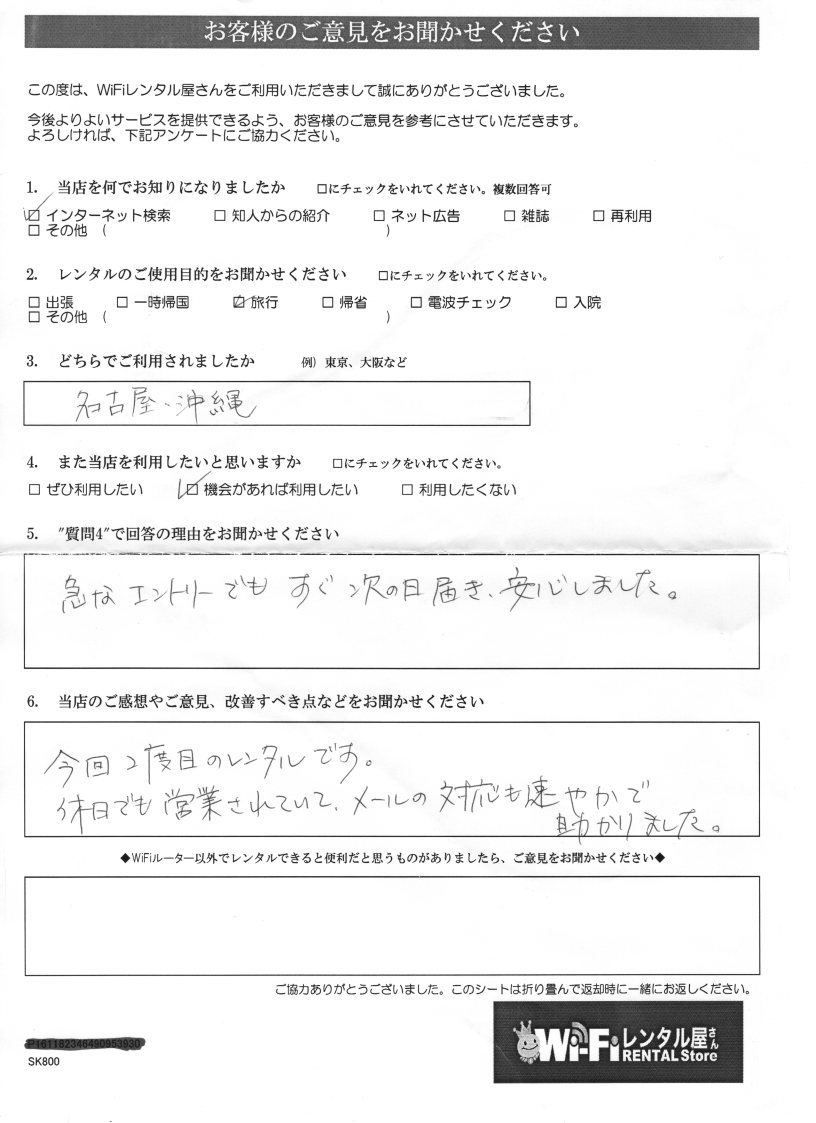 お客様のご意見をお聞かせください
この度は、WiFiレンタル屋さんをご利用いただきまして誠にありがとうございました。
今後よりよいサービスを提供できるよう、お客様のご意見を参考にさせていただきます。
よろしければ、下記アンケートにご協力ください。
1. 当店を何でお知りになりましたか □にチェックをいれてください。複数回答可
☑ インターネット検索 □ 知人からの紹介 □ ネット広告 □ 雑誌 □ 再利用
□ その他 ( )
2. レンタルのご使用目的をお聞かせください □にチェックをいれてください。
□ 出張 □ 一時帰国 ☑ 旅行 □ 帰省 □ 電波チェック □ 入院
□ その他 ( )
3. どちらでご利用されましたか 例) 東京、大阪など
名古屋・沖縄
4. また当店を利用したいと思いますか □にチェックをいれてください。
□ ぜひ利用したい ☑ 機会があれば利用したい □ 利用したくない
5. "質問4"で回答の理由をお聞かせください
急なエントリーでも すぐ次の日届き、安心しました。
6. 当店のご感想やご意見、改善すべき点などをお聞かせください
今回2度目のレンタルです。
休日でも営業されていて、メールの対応も速やかで
助かりました。
◆WiFiルーター以外でレンタルできると便利だと思うものがありましたら、ご意見をお聞かせください◆
ご協力ありがとうございました。このシートは折り畳んで返却時に一緒にお返しください。
P161182346490953930
SK800
Wi-Fiレンタル屋さん
RENTAL Store